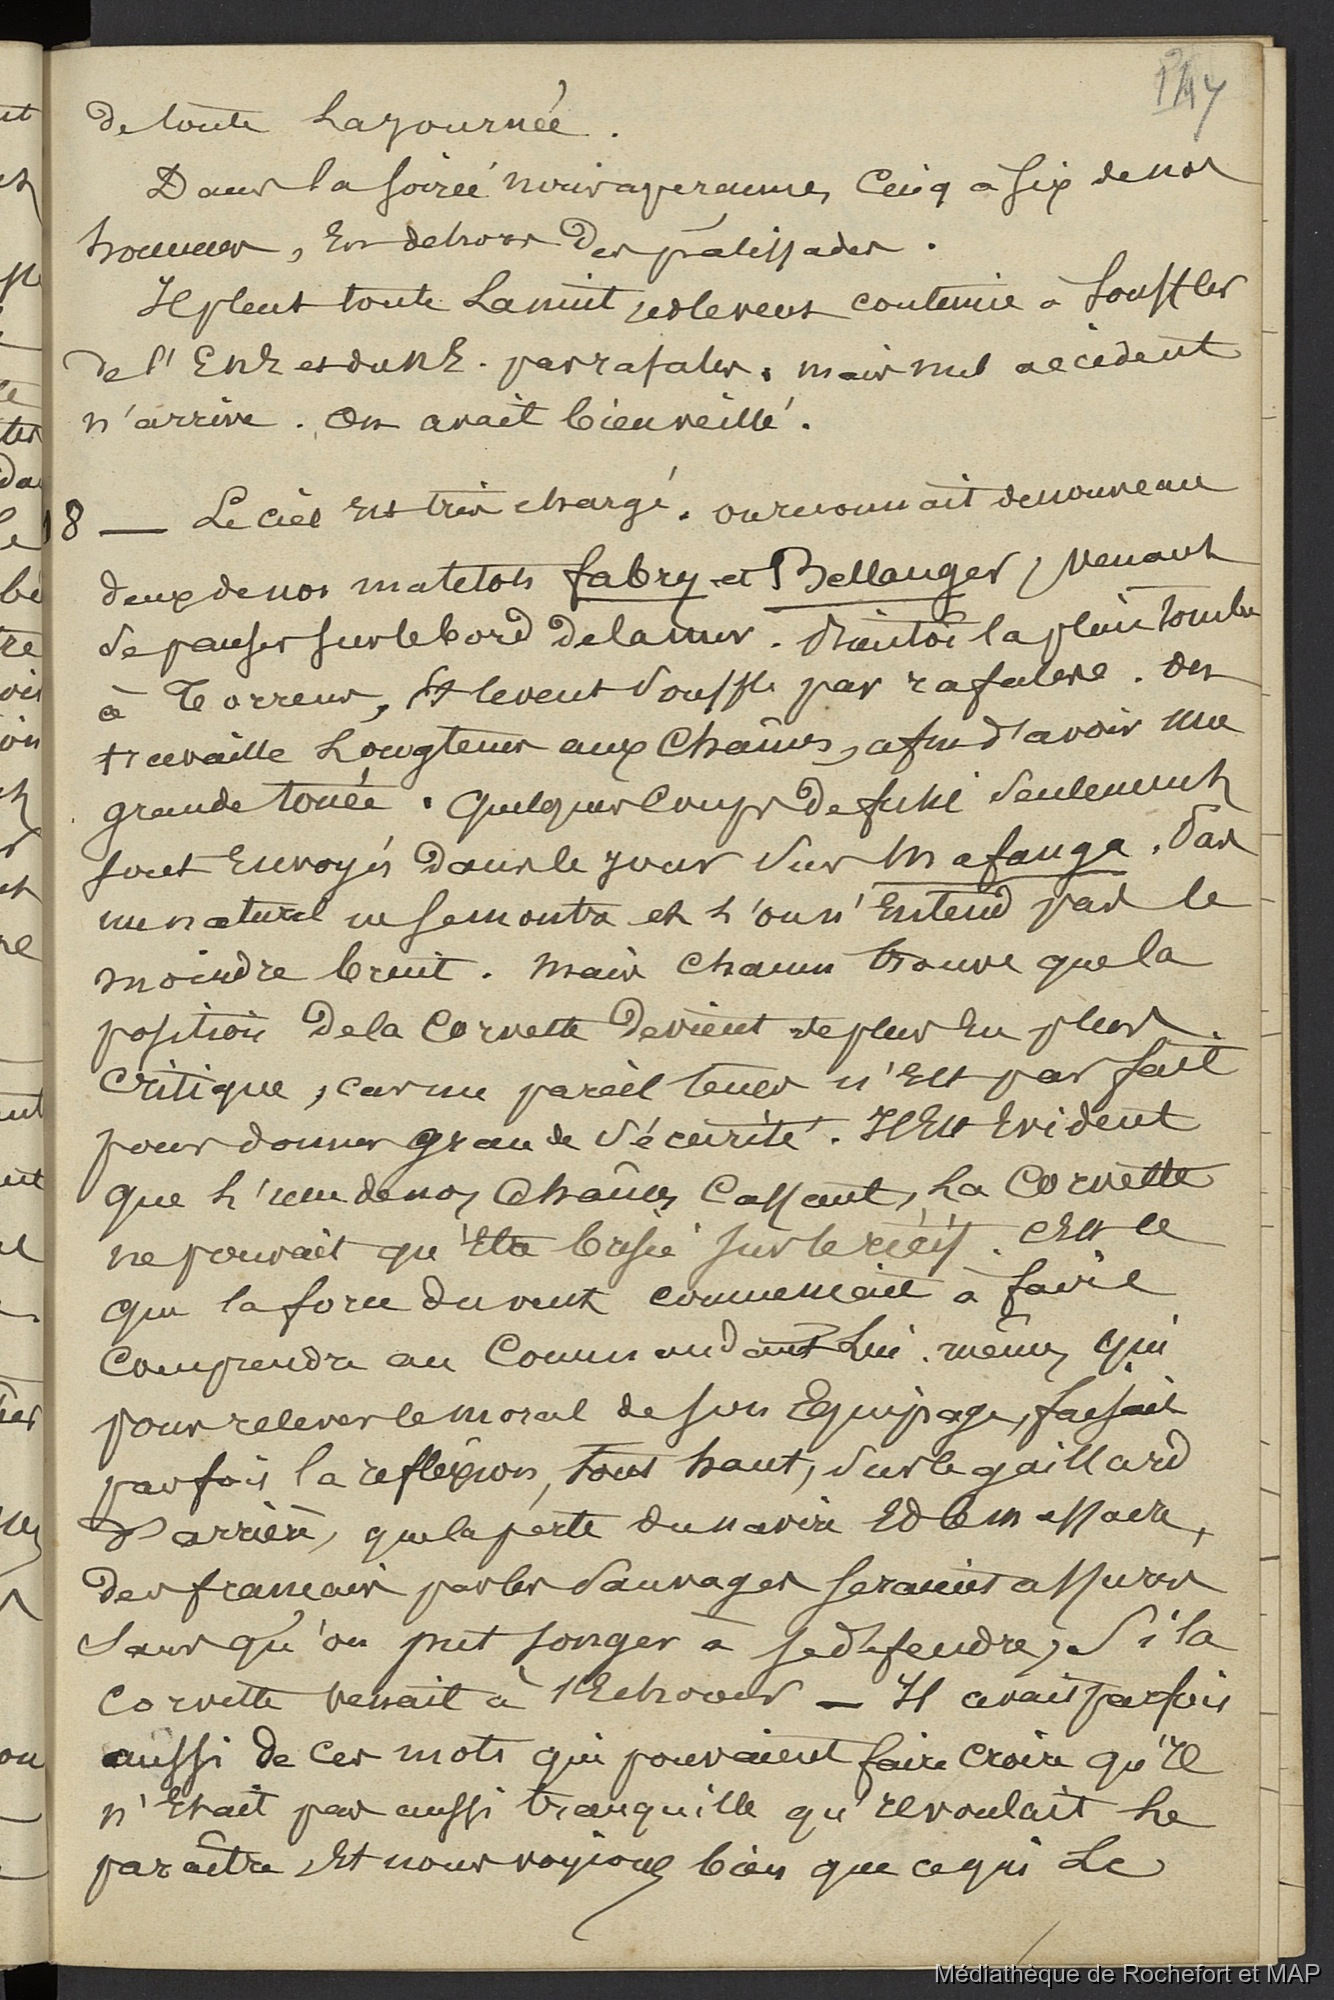 147
de toute la journée.
Dans la soirée nous apercumes cinq à six de nos
hommes, En dehors des palissades.
Il pleut toute la nuit et le vent continue à souffler
de l'ENE et du NE. par rafales. mais nul accident
n'arrive. On avait bien veillé.
18 — Le ciel Est très chargé. on reconnait de nouveau
deux de nos matelots fabry et Bellanger, venant
de passer sur le bord de la mer. Bientôt la pluie tombe
à Torrens, Et le vent souffle par rafales. On
travaille Longtems aux Chaînes, afin d'avoir une
grande touée. Quelques coups de fusil seulement
sont Envoyés dans le jour sur Mafanga. Pas
un naturel ne se montra et l'on n'Entend pas le
moindre bruit. Mais chacun trouve que la
position de la Corvette devient de plus En plus
critique, car un pareil tems n'Est pas fait
pour donner grande sécurité. Il Est Evident
que l'une de nos Chaînes cassant, La Corvette
ne pouvait qu'Etre brisée sur le récif. C'Est ce
que la force du vent commencait à faire
comprendre au Commandant Lui-même, qui
pour relever le moral de son Equipage, faisait
parfois la reflexion, tout haut, sur le gaillard
d'arrière, que la perte du navire Et le massacre,
des francais par les sauvages seraient assurés
sans qu'on put songer à se défendre, Si la
corvette venait à s'Echouer — Il avait parfois
aussi de ces mots qui pouvaient faire croire qu'Il
n'Etait pas aussi tranquille qu'Il voulait le
paraître, Et nous voyions bien que ce qui Le
Médiathèque de Rochefort et MAP